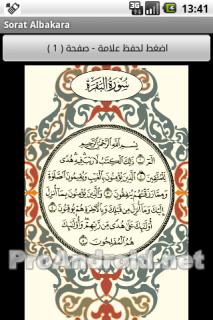 3G
13:41
Sorat Albakara
اضغط لحفظ علامة - صفحة ( 1 )
سُورَةُ الْبَقَرَةِ
بِسْمِ اللَّهِ الرَّحْمَٰنِ الرَّحِيمِ
الٓمٓ ۝١ ذَٰلِكَ الْكِتَابُ لَا رَيْبَ ۛ فِيهِ ۛ هُدًى
لِّلْمُتَّقِينَ ۝٢ الَّذِينَ يُؤْمِنُونَ بِالْغَيْبِ وَيُقِيمُونَ الصَّلَوٰةَ
وَمِمَّا رَزَقْنَٰهُمْ يُنفِقُونَ ۝٣ وَالَّذِينَ يُؤْمِنُونَ بِمَا أُنزِلَ
إِلَيْكَ وَمَا أُنزِلَ مِن قَبْلِكَ وَبِالْآخِرَةِ هُمْ يُوقِنُونَ ۝٤
أُولَٰئِكَ عَلَىٰ هُدًى مِّن رَّبِّهِمْ ۖ وَأُولَٰئِكَ
هُمُ الْمُفْلِحُونَ ۝٥
ProAndroid.net